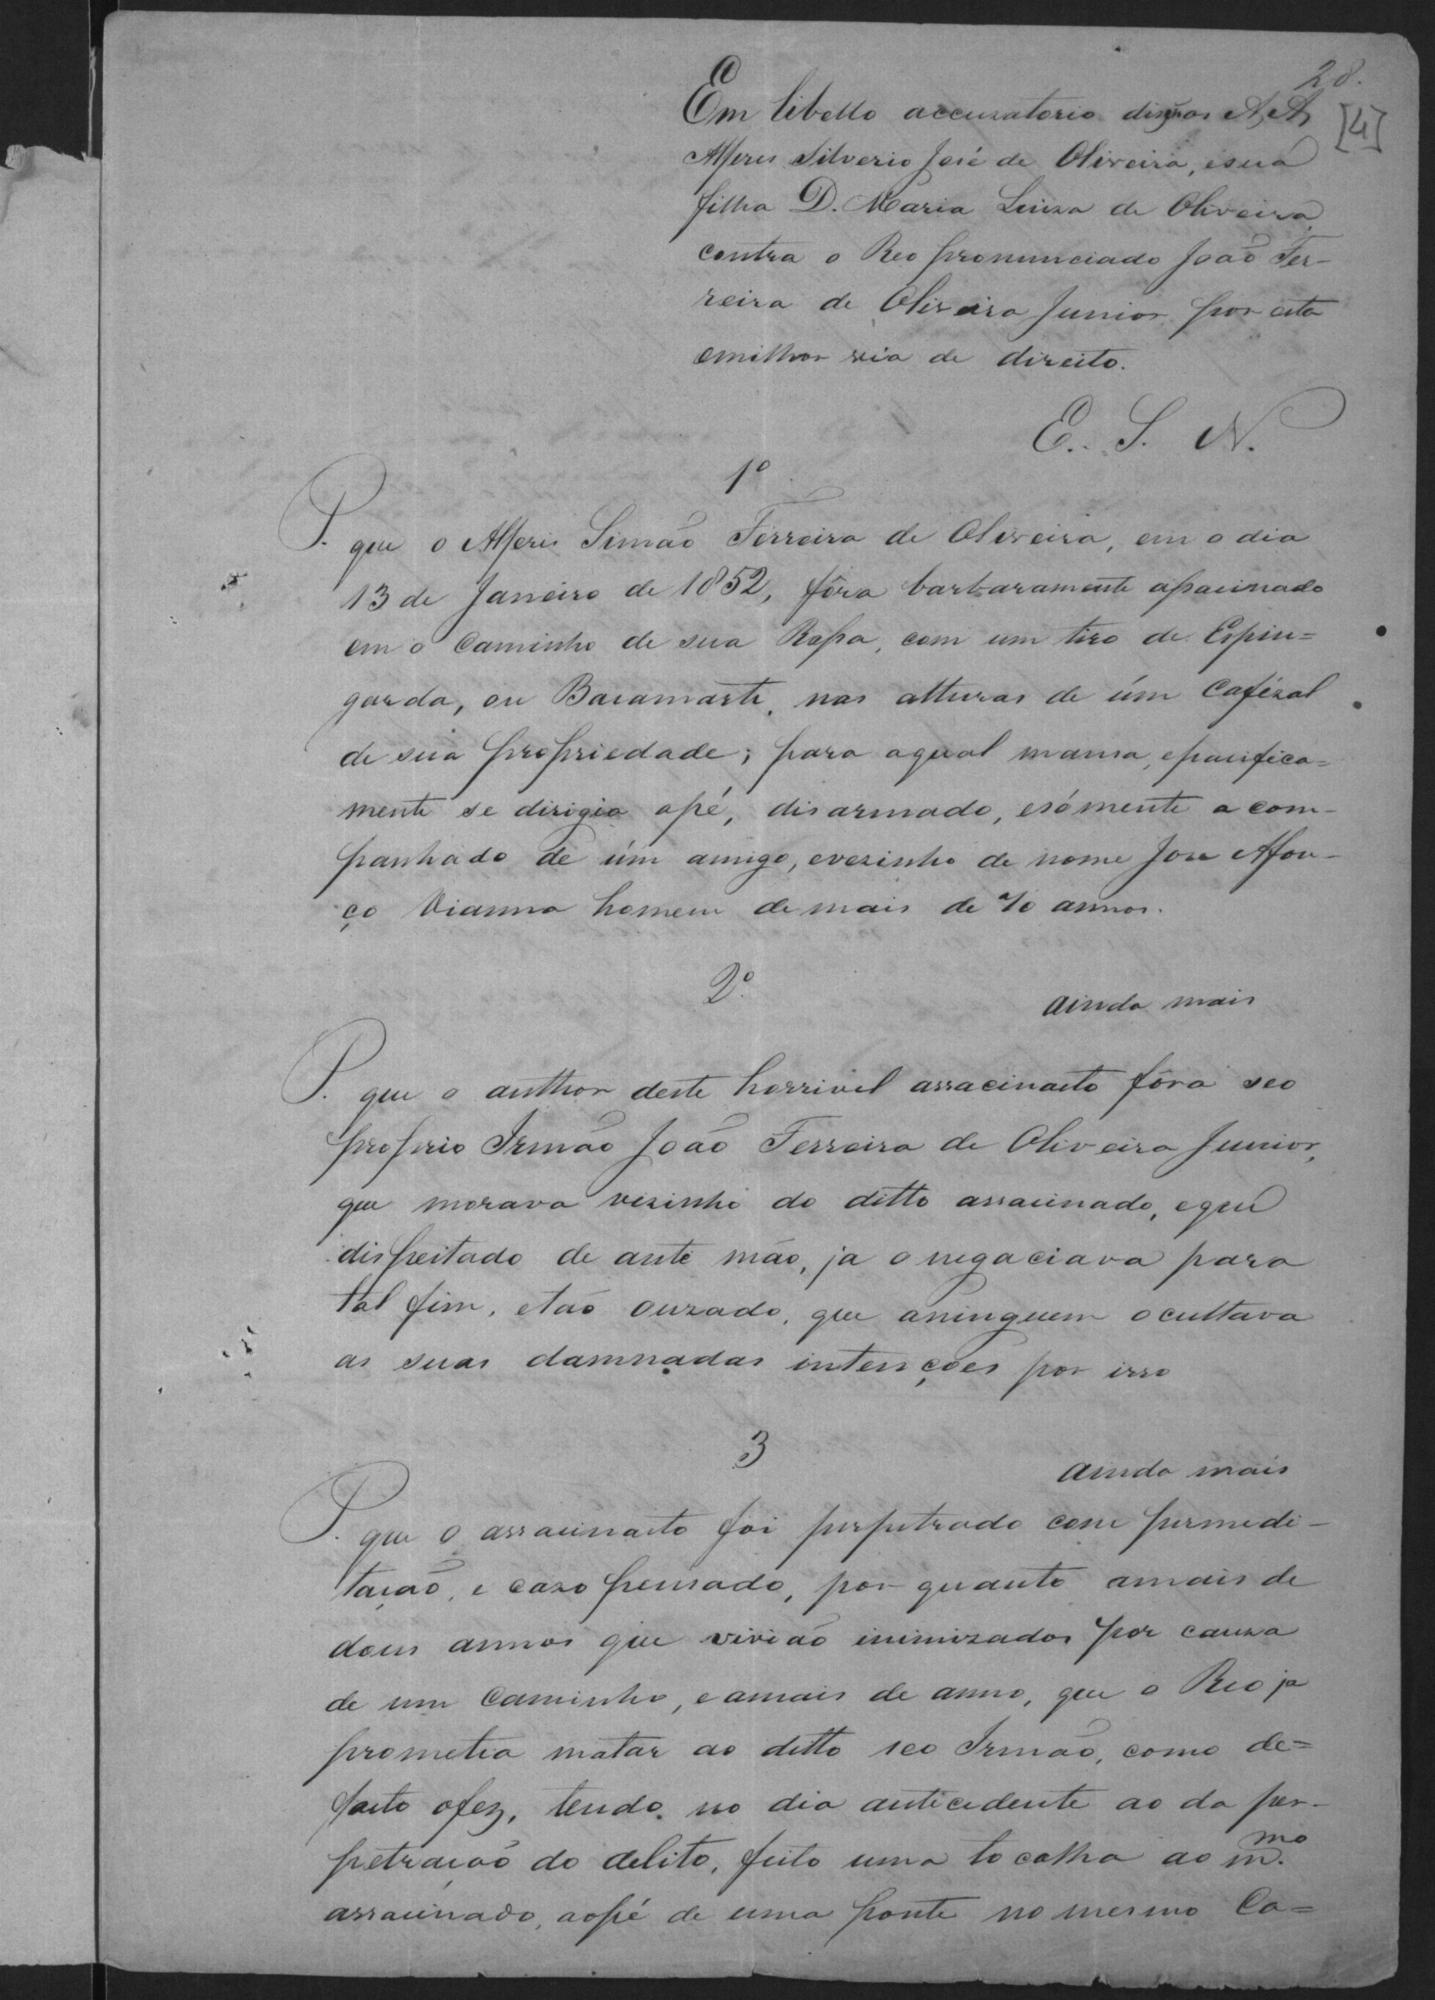 28.
[4]
Em libello accusatorio dizem os A,A,
Alferes Silverio José de Oliveira, e sua
filha D. Maria Luiza de Oliveira
contra o Reo pronunciado João Fer-
reira de Oliveira Junior por esta
emilhor via de direito.
E. S. N.
1º
P. que o Alferes Simão Ferreira de Oliveira, em o dia
13 de Janeiro de 1852, fôra barbaramente assacinado
em o caminho de sua Rossa, com um tiro de Espin=
garda, ou Bacamarte, nas alturas de úm Cafézal
de sua propriedade; para aqual mansa, epacifica=
mente se dirigia apé, disarmado, esómente acom-
panhado de úm amigo, evezinho de nome Jose Afon-
ço Vianna homem de mais de 70 annos.
2º
ainda mais
P. que o author deste horrivel assacinato fôra seo
proprio Irmão João Ferreira de Oliveira Junior,
que morava vezinho do ditto assacinado, eque
dispeitado de ante mão, ja onegaciava para
tal fim, etão ouzado, que aninguem ocultava
as suas damnadas intenções por isso
3
ainda mais
P. que o assacinato foi perpetrado com permedi-
tação, e cazo pensado, por quanto amais de
dous annos que vivião inimizados por cauza
de um caminho, eamais de anno, que o Reo ja
prometia matar ao ditto seo Irmão, como de=
facto ofez, tendo no dia antecedente ao da per-
petração do delito, feito uma tocalha ao m.mo
assacinado, aopé de uma ponte no mesmo Ca=